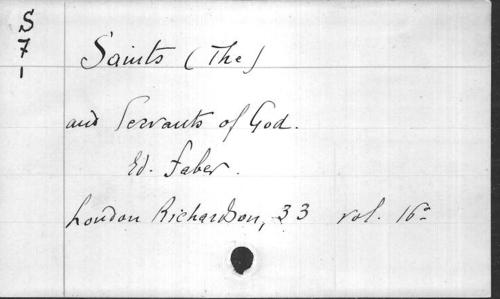 S
7
1
Saints (The)
and Servants of God.
Ed. Faber.
London Richardson, 33 vol. 16º